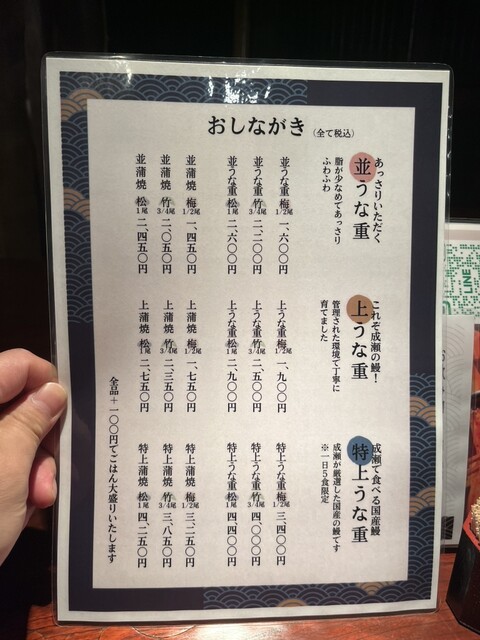 おしながき (全て税込)
あっさりいただく
並うな重
脂が少なめであっさり
ふわふわ
並うな重 梅 1/2尾 一、六〇〇円
並うな重 竹 3/4尾 二、二〇〇円
並うな重 松 1尾 二、六〇〇円
並蒲焼 梅 1/2尾 一、四五〇円
並蒲焼 竹 3/4尾 二、〇五〇円
並蒲焼 松 1尾 二、四五〇円
これぞ成瀬の鰻!
上うな重
管理された環境で丁寧に
育てました
上うな重 梅 1/2尾 一、九〇〇円
上うな重 竹 3/4尾 二、五〇〇円
上うな重 松 1尾 二、九〇〇円
上蒲焼 梅 1/2尾 一、七五〇円
上蒲焼 竹 3/4尾 二、三五〇円
上蒲焼 松 1尾 二、七五〇円
成瀬で食べる国産鰻
特上うな重
成瀬が厳選した国産の鰻です
※一日5食限定
特上うな重 梅 1/2尾 三、四〇〇円
特上うな重 竹 3/4尾 四、〇〇〇円
特上うな重 松 1尾 四、四〇〇円
特上蒲焼 梅 1/2尾 三、二五〇円
特上蒲焼 竹 3/4尾 三、八五〇円
特上蒲焼 松 1尾 四、二五〇円
全品+一〇〇円でごはん大盛りいたします
LINE